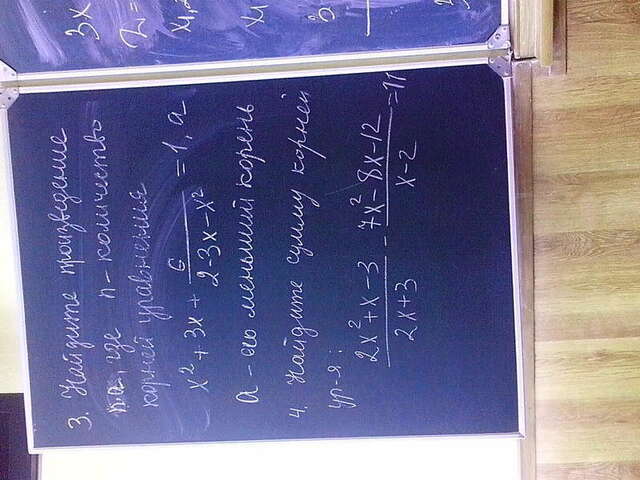 3. Найдите произведение
n·a, где n - количество
корней уравнения
x² + 3x + 6/(2-3x-x²) = 1, а
a - его меньший корень
4. Найдите сумму корней
ур-я:
(2x²+x-3)/(2x+3) - (7x²-8x-12)/(x-2) = 11
3x
2=
x₁,₂
x₁